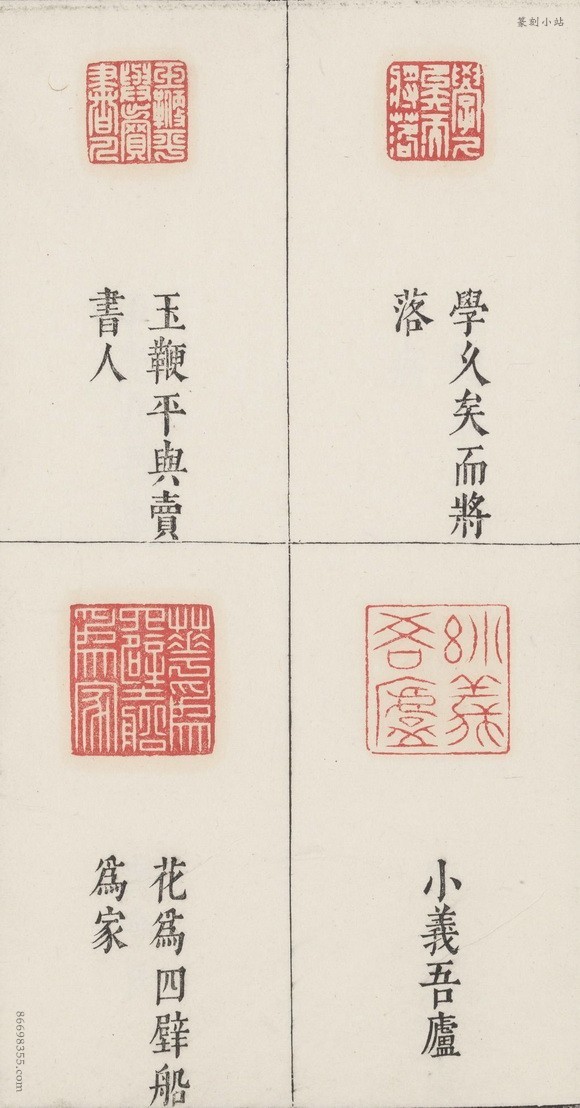 篆刻小站
學久矣而將
落
玉鞭平與賣
書人
小義吾廬
花爲四壁船
爲家
86698355.com